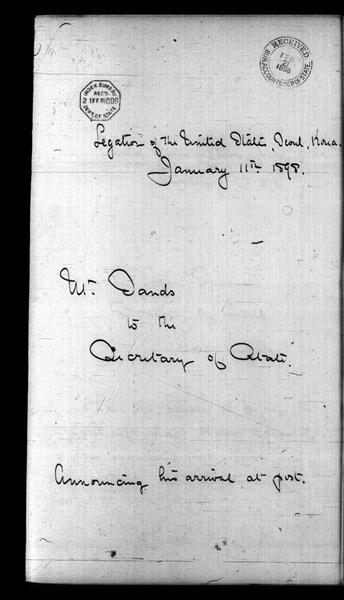 RECEIVED
FEB
1898
BUREAU OF ACCOUNTS DEPT. OF STATE
INDEX BUREAU
REC'D
21 FEB 1898
DEPT. OF STATE
Legation of the United States, Seoul, Korea.
January 11th 1898.
Mr. Sands
to the
Secretary of State.
Announcing his arrival at post.